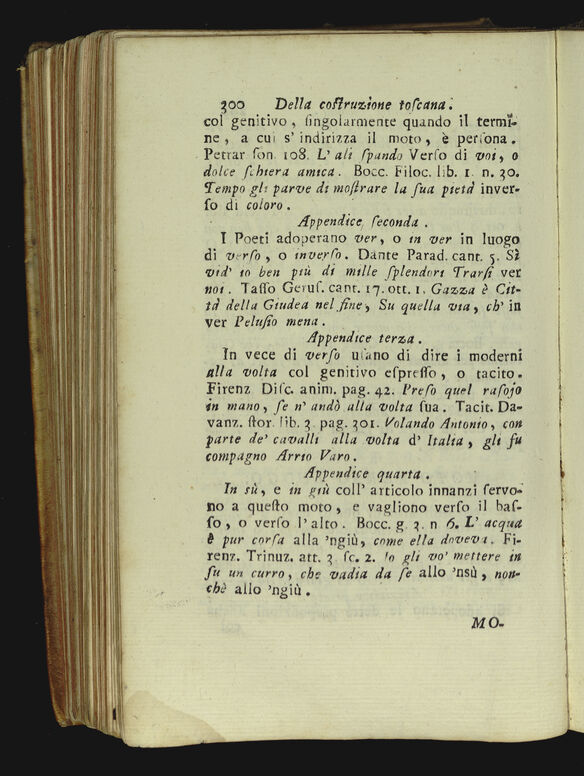 300 Della coſtruzione toſcana.
col genitivo, ſingolarmente quando il termi-
ne, a cui s' indirizza il moto, è perſona.
Petrar ſon. 108. L' ali ſpando Verſo di voi, o
dolce ſchiera amica. Bocc. Filoc. lib. 1. n. 30.
Tempo gli parve di moſtrare la ſua pietà inver-
ſo di coloro.
Appendice ſeconda.
I Poeti adoperano ver, o in ver in luogo
di verſo, o inverſo. Dante Parad. cant. 5. Sì
vid' io ben più di mille ſplendori Trarſi ver
noi. Taſſo Geruſ. cant. 17. ott. 1. Gazza è Cit-
tà della Giudea nel fine, Su quella via, ch' in
ver Peluſio mena.
Appendice terza.
In vece di verſo uſano di dire i moderni
alla volta col genitivo eſpreſſo, o tacito.
Firenz Diſc. anim. pag. 42. Preſo quel raſojo
in mano, ſe n' andò alla volta ſua. Tacit. Da-
vanz. ſtor. lib. 3. pag. 301. Volando Antonio, con
parte de' cavalli alla volta d' Italia, gli fu
compagno Arrio Varo.
Appendice quarta.
In sù, e in giù coll' articolo innanzi ſervo-
no a queſto moto, e vagliono verſo il baſ-
ſo, o verſo l' alto. Bocc. g. 3. n 6. L' acqua
è pur corſa alla 'ngiù, come ella doveva. Fi-
renz. Trinuz. att. 3. ſc. 2. Io gli vo' mettere in
ſu un curro, che vadia da ſe allo 'nsù, non-
chè allo 'ngiù.
MO-